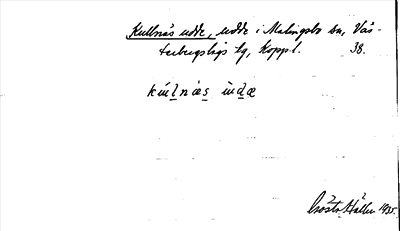 Kullnäs udde, udde i Malingsbo sn, Väs-
terbergslags tg, Koppl. 38.
kúlnäs ùdæ
Gösta Hallm 1935.